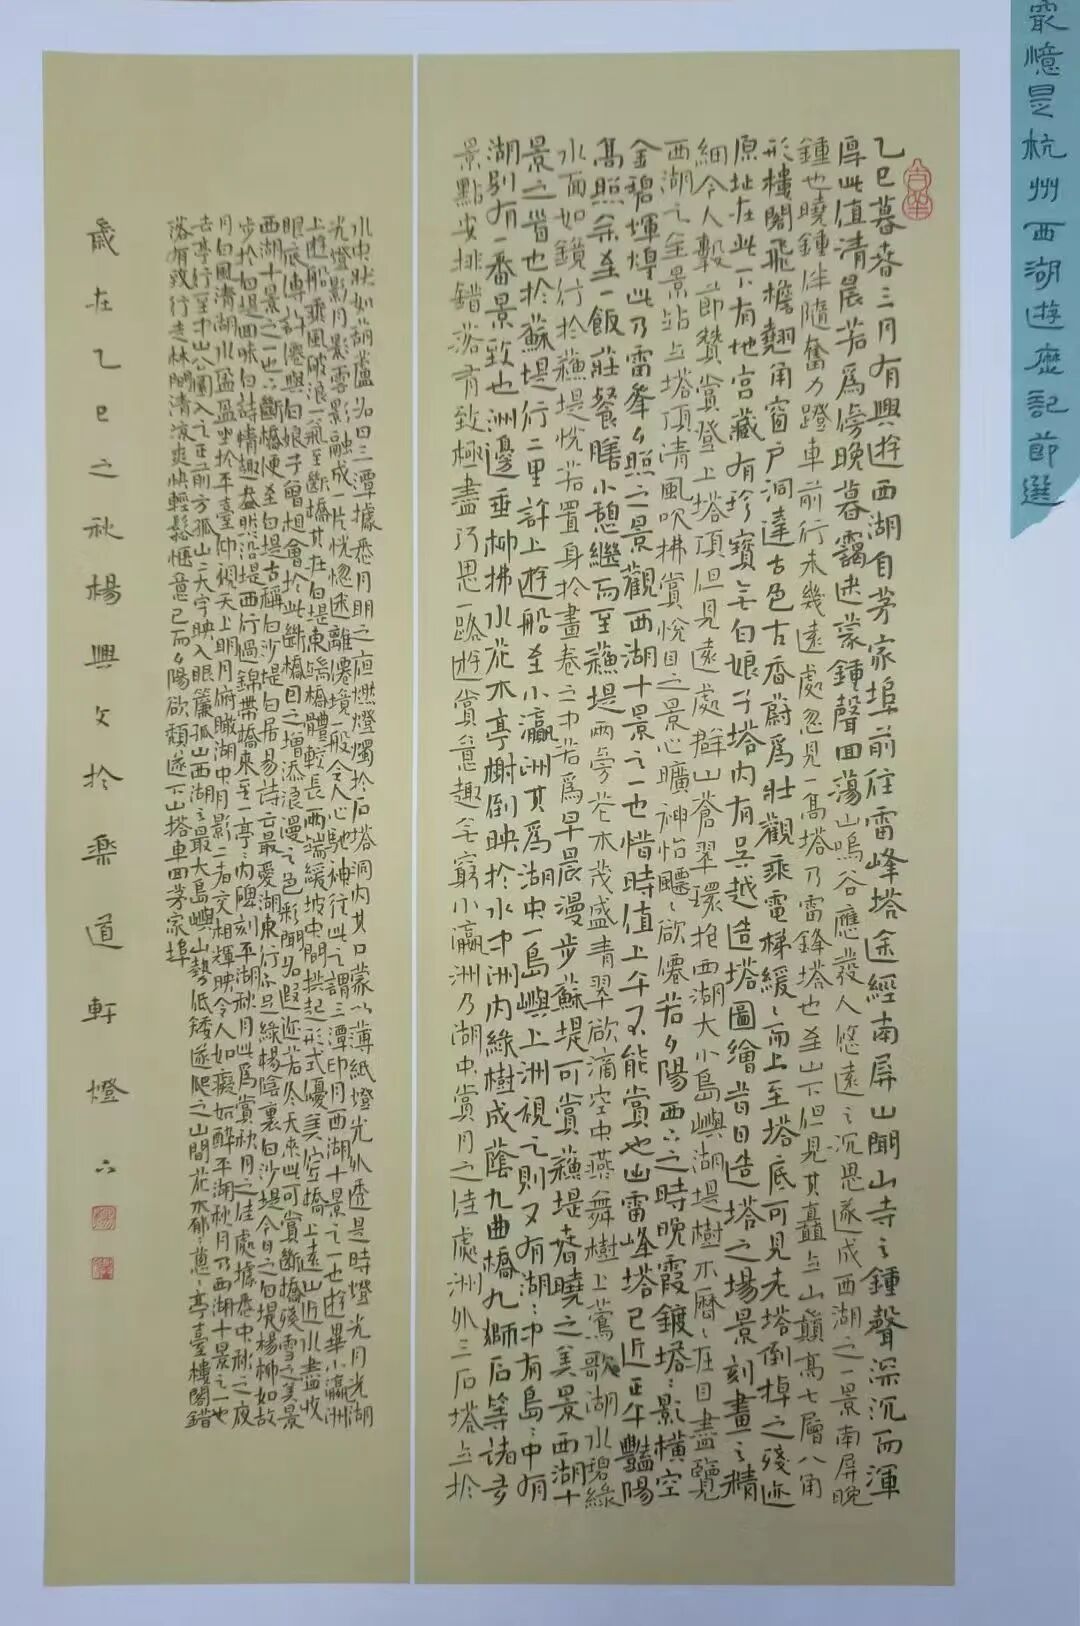 最憶是杭州西湖遊歷記節選
乙巳暮春三月有興遊西湖自茅家埠前往雷峰塔途經南屏山聞山寺之鍾聲深沉而渾
厚此值清晨若為傍晚暮靄迷蒙鍾聲回蕩山鳴谷應發人悠遠之沉思遂成西湖之一景南屏晚
鍾也曉鍾伴隨奮力蹬車前行未幾遠處忽見一高塔乃雷鋒塔也至山下但見其矗立山巔高七層八角
形樓閣飛檐翹角窗戶洞達古色古香蔚為壯觀乘電梯緩緩而上至塔底可見老塔倒掉之殘迹
原址在此下有地宮藏有珍寶無白娘子塔內有吳越造塔圖繪昔日造塔之場景刻畫之精
細令人擊節贊賞登上塔頂但見遠處群山蒼翠環抱西湖大小島嶼湖堤樹木曆曆在目盡覽
西湖之全景站立塔頂清風吹拂賞悅目之景心曠神怡飄飄欲僊若夕陽西下之時晚霞鍍塔塔影橫空
金碧煇煌此乃雷峰夕照之景觀西湖十景之一也惜時值上午不能賞也出雷峰塔已近正午豔陽
高照余至一飯莊餐膳小憩繼而至蘇堤兩旁花木茂盛青翠欲滴空中燕舞樹上鶯歌湖水碧綠
水面如鏡行於蘇堤恍若置身於畫卷之中若為早晨漫步蘇堤可賞蘇堤春曉之美景西湖十
景之首也於蘇堤行二里許上遊船至小瀛洲其為湖中一島嶼上洲視之則又有湖湖中有島島中有
湖別有一番景致也洲邊垂柳拂水花木亭榭倒映於水中洲內綠樹成蔭九曲橋九獅石等諸多
景點安排錯落有致極盡巧思一路遊賞意趣無窮小瀛洲乃湖中賞月之佳處洲外三石塔立於
水中狀如葫蘆名曰三潭據悉月明之夜燃燈燭於石塔洞內其口蒙以薄紙燈光外透是時燈光月光湖
光燈影月影雲影融成一片恍惚迷離僊境一般令人心馳神往此之謂三潭印月西湖十景之一也遊畢小瀛洲
上遊船乘風破浪一氣至斷橋其在白堤東端橋體較長兩端緩坡中間拱起形式優美空橋上遠山近水盡收
眼底傳許僊與白娘子曾相會於此斷橋因之增添浪漫之色彩聞名遐迩若冬天來此可賞斷橋殘雪之美景
西湖十景之一也斷橋便至白堤古稱白沙堤白居易詩云最愛湖東行不足綠楊陰裏白沙堤今日之白堤楊柳如故
步於白堤回味白詩情趣盎然沿堤西行過錦帶橋來至一亭亭內碑刻平湖秋月此為賞秋月之佳處據悉中秋之夜
月白風清湖水盈盈坐於平臺仰視天上明月俯瞰湖中月影二者交相輝映令人如癡如醉平湖秋月乃西湖十景之一也
去亭行至中山公園入之正前方孤山二大字映入眼簾孤山西湖之最大島嶼山勢低矮遂爬之山間花木郁郁蔥蔥亭臺樓閣錯
落有致行走林間清涼爽快輕鬆愜意已而夕陽欲頹遂下山搭車回茅家埠
歲在乙巳之秋楊興文於樂道軒燈下